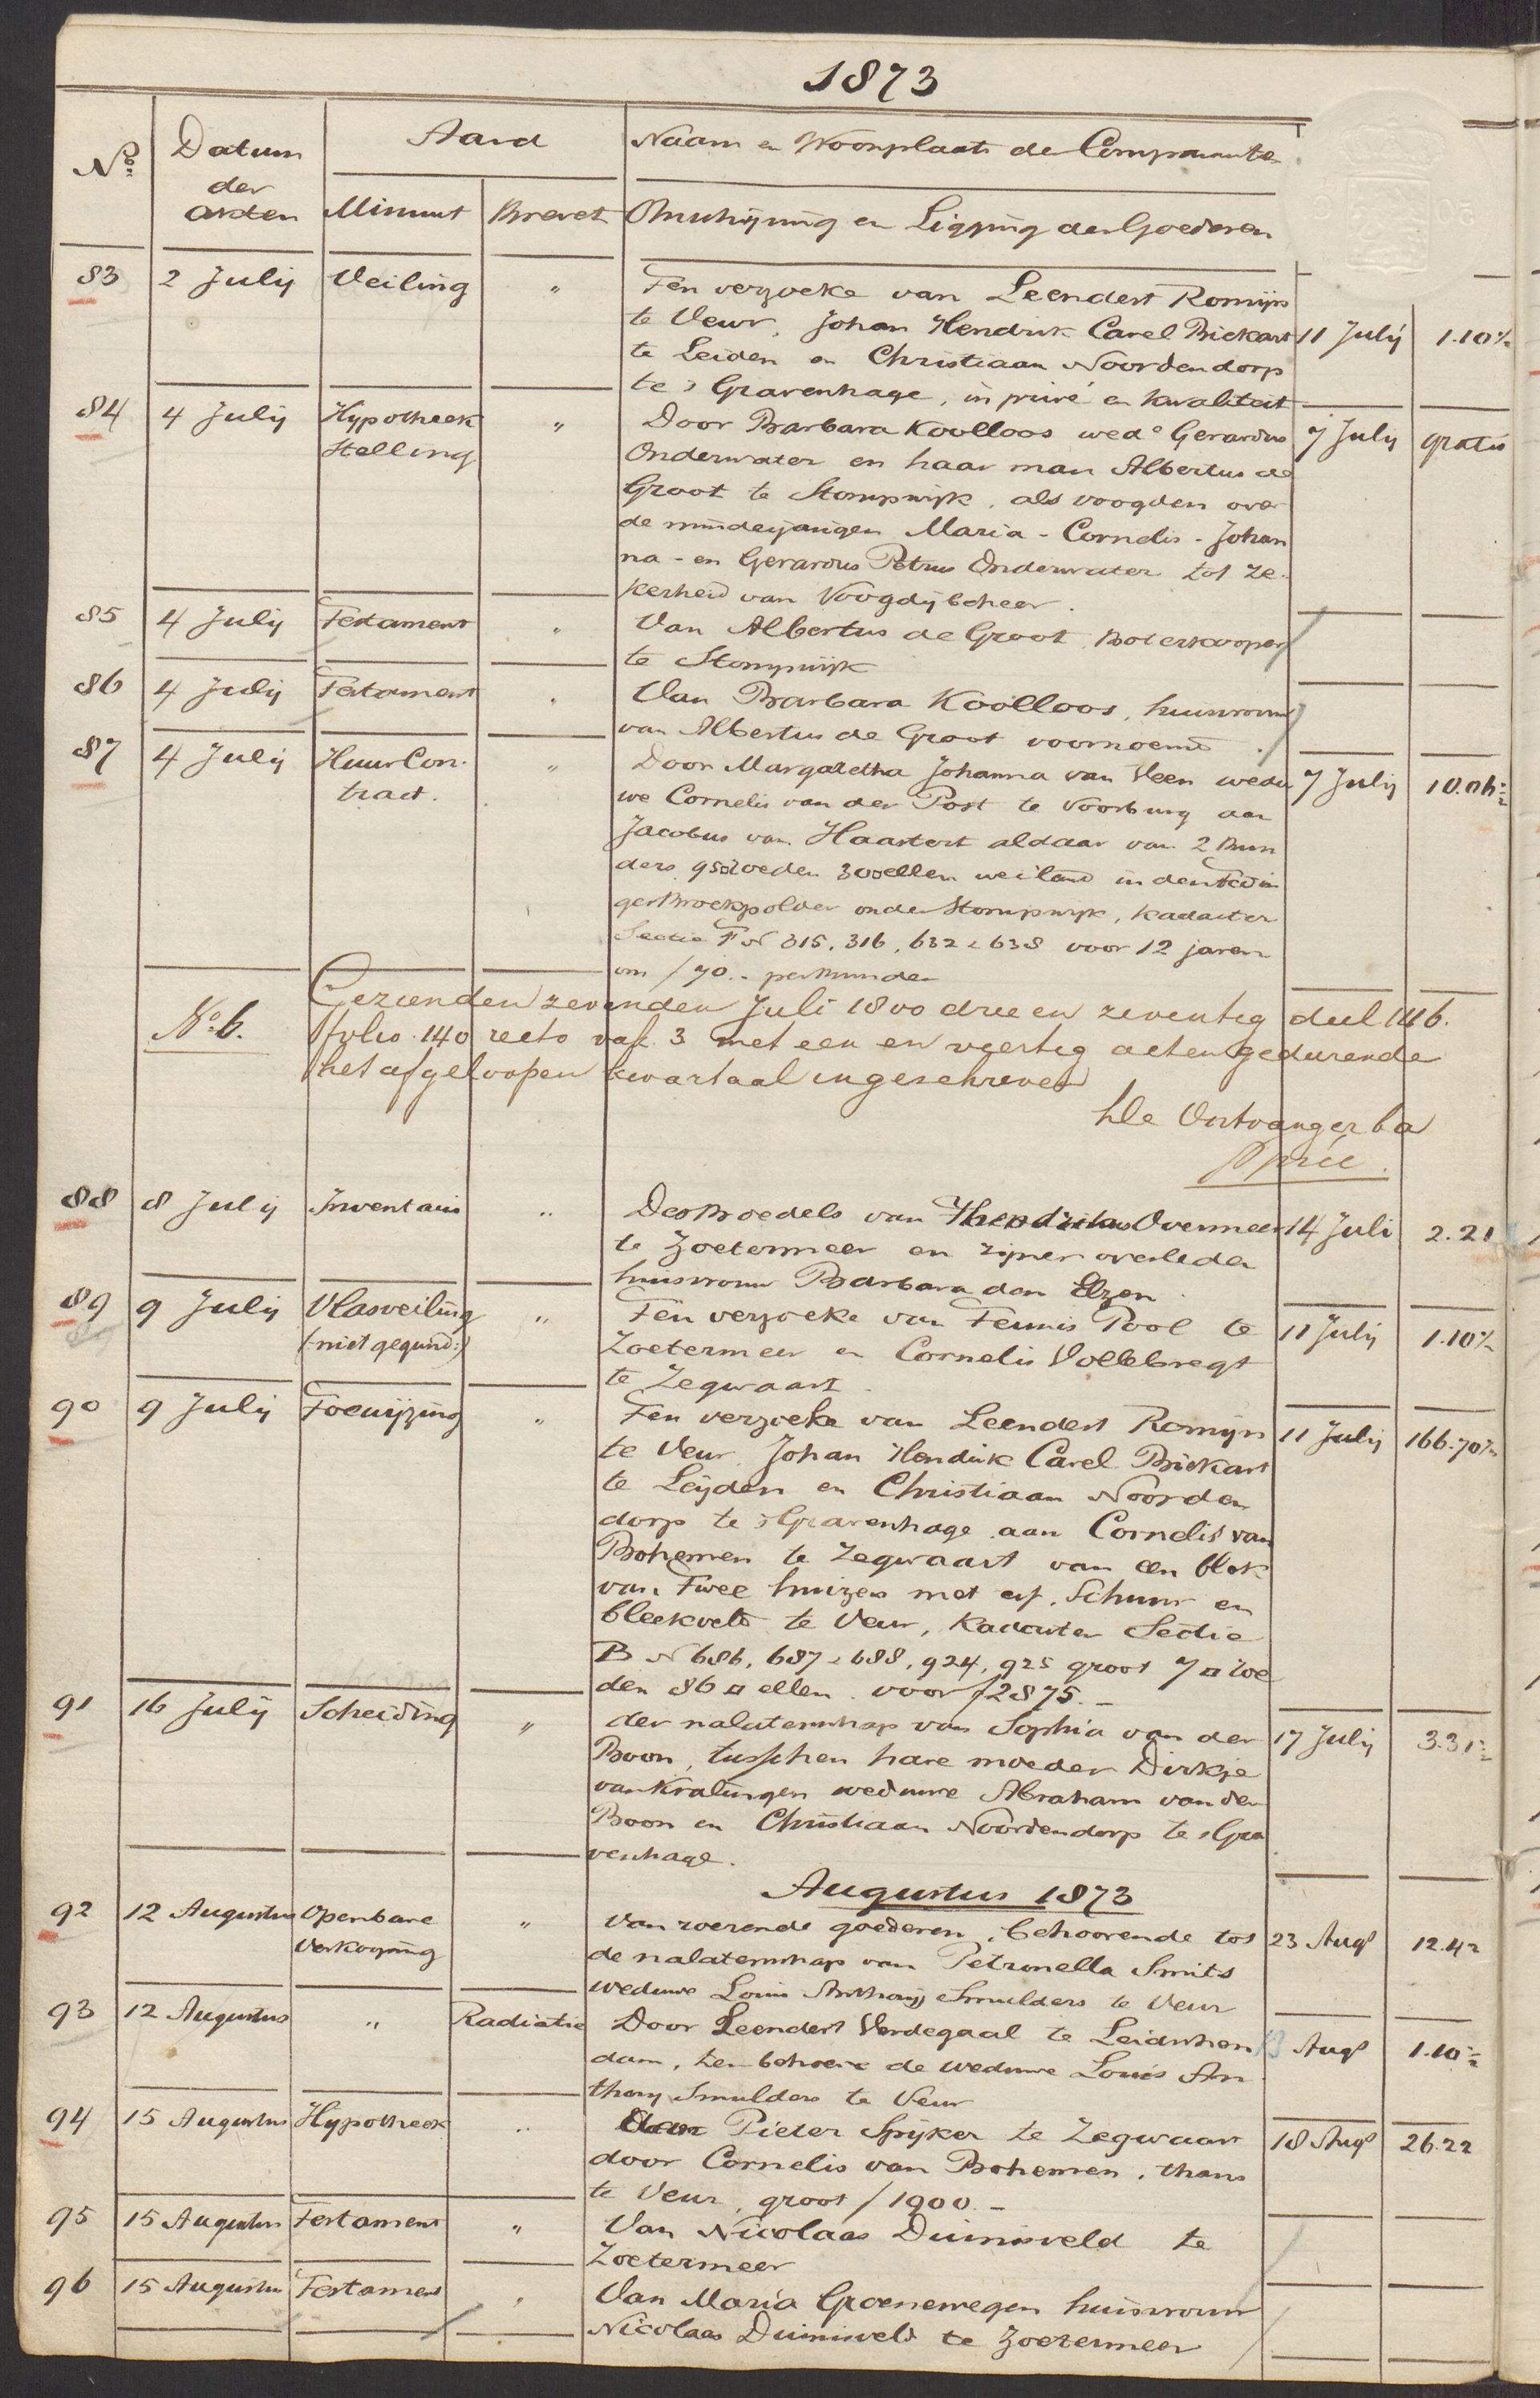 1873
No. Datum der akten Aard Minuut Brevet Naam en Woonplaats der Comparanten Omschrijving en Ligging der Goederen
83 2 Julij Veiling " Ten verzoeke van Leendert Romijn 11 Julij 1.10½
te Veur, Johan Hendrik Carel Brickart
te Leiden en Christiaan Noordendorp
te 's Gravenhage, in privé en kwaliteit
84 4 Julij Hypotheek Stelling " Door Barbara Koolloos wede Gerardus 7 Julij gratis
Onderwater en haar man Albertus de
Groot te Stompwijk, als voogden over
de minderjarigen Maria - Cornelis - Johan
na - en Gerardus Petrus Onderwater tot ze-
kerheid van Voogdijbeheer.
85 4 Julij Testament " Van Albertus de Groot, Boterkooper
te Stompwijk
86 4 Julij Testament " Van Barbara Koolloos, huisvrouw
van Albertus de Groot voornoemd.
87 4 Julij Huur Con- tract. " Door Margaretha Johanna van Veen wedu 7 Julij
we Cornelis van der Post te Voorburg aan
Jacobus van Haastert aldaar van 2 Bun
ders 95 roeden 30 ellen weiland in den
polder onder Stompwijk, kadaster
Sectie F N 315, 316, 632 & 638 voor 12 jaren
om f 70.- per Bunder
No. 6. Gezien den zevenden Juli 1800 drie en zeventig deel 146.
folio 140 recto vak 3 met een en veertig acten gedurende
het afgeloopen kwartaal ingeschreven
De Ontvanger
88 8 Julij Inventaris " Des Boedels van Hendrikus Overmeer 14 Juli 2.21
te Zoetermeer en zijner overleden
huisvrouw Barbara den Elzen.
89 9 Julij Vlasveiling (niet gegund:) " Ten verzoeke van Teunis Pool te 11 Julij 1.10½
Zoetermeer en Cornelis Vollebregt
te Zegwaart.
90 9 Julij Toewijzing " Ten verzoeke van Leendert Romijn 11 Julij 166.70½
te Veur, Johan Hendrik Carel Brickart
te Leijden en Christiaan Noorden
dorp te 's Gravenhage aan Cornelis van
Bohemen te Zegwaart van een blok
van Twee huizen met erf, Schuur en
bleekveld te Veur, Kadaster Sectie
B N 686, 687 & 688, 924, 925 groot 7 □ roe
den 86 □ ellen voor f 2875.-
91 16 Julij Scheiding " der nalatenschap van Sophia van der 17 Julij 3.31½
Boon, tusschen hare moeder Dirkje
van Kralingen weduwe Abraham van der
Boon en Christiaan Noordendorp te 's Gra
venhage.
Augustus 1873
92 12 Augustus Openbare Verkooping " Van roerende goederen, behoorende tot 23 Augs 12.42
de nalatenschap van Petronella Smits
weduwe Louis Anthonij Smulders te Veur
93 12 Augustus " Radiatie Door Leendert Verdegaal te Leidschen Augs 1.10½
dam, ten behoeve de weduwe Louis An
thony Smulders te Veur
94 15 Augustus Hypotheek " Aan Pieter Spijker te Zegwaart 18 Augs 26.22
door Cornelis van Bohemen, thans
te Veur, groot f 1900.-
95 15 Augustus Testament " Van Nicolaas Duinisveld te
Zoetermeer
96 15 Augustus Testament " Van Maria Groenewegen huisvrouw
Nicolaas Duinisveld te Zoetermeer